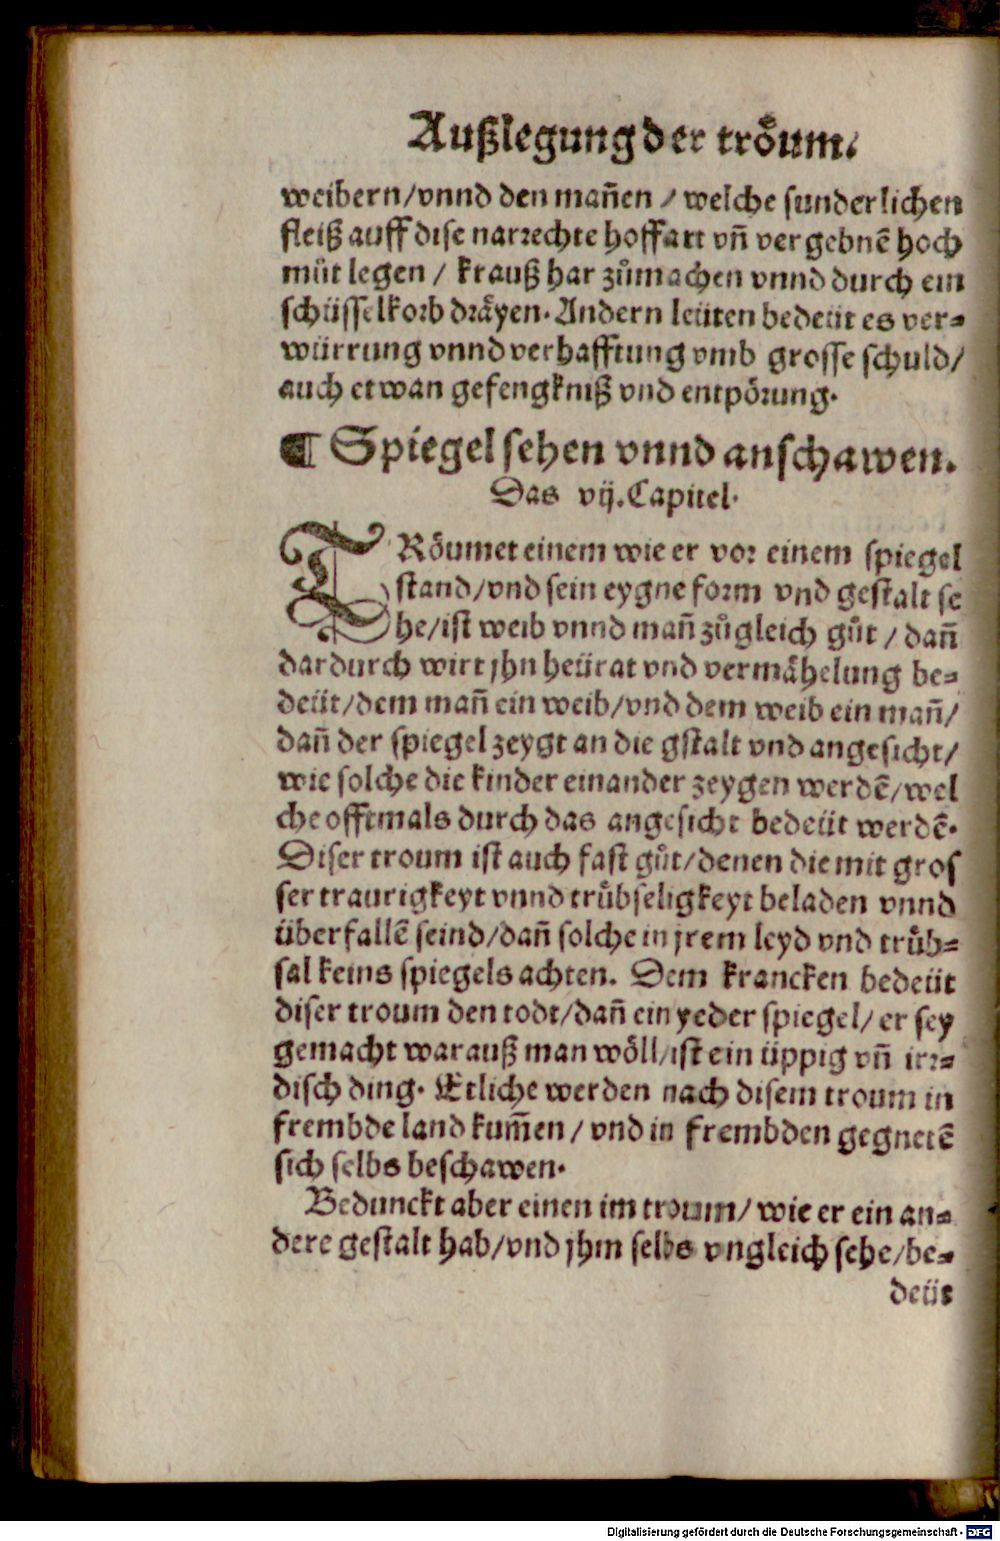 Außlegung der troͤum.
weibern/vnnd den mañen / welche sunderlichen
fleiß auff dise narrechte hoffart vñ vergebnẽ hoch
muͤt legen / krauß har zuͦmachen vnnd durch ein
schüsselkorb draͤyen. Andern leüten bedeüt es ver-
würrung vnnd verhafftung vmb grosse schuld/
auch etwan gefengkniß vnd entpoͤrung.
¶ Spiegel sehen vnnd anschawen.
Das vij. Capitel.
TRoͤumet einem wie er vor einem spiegel
stand/vnd sein eygne form vnd gestalt se
he/ist weib vnnd mañ zuͦgleich guͦt / dañ
dardurch wirt jhn heürat vnd vermaͤhelung be-
deüt/dem mañ ein weib/vnd dem weib ein mañ/
dañ der spiegel zeygt an die gstalt vnd angesicht/
wie solche die kinder einander zeygen werdẽ/wel
che offtmals durch das angesicht bedeüt werdẽ.
Diser troum ist auch fast guͦt/denen die mit gros
ser traurigkeyt vnnd truͤbseligkeyt beladen vnnd
überfallẽ seind/dañ solche in jrem leyd vnd truͤb-
sal keins spiegels achten. Dem krancken bedeüt
diser troum den todt/dañ ein yeder spiegel/ er sey
gemacht warauß man woͤll/ist ein üppig vñ irr-
disch ding. Etliche werden nach disem troum in
frembde land kum̃en / vnd in frembden gegnetẽ
sich selbs beschawen.
Bedunckt aber einen im troum/ wie er ein an-
dere gestalt hab/vnd jhm selbs vngleich sehe/be-
deüt
Digitalisierung gefördert durch die Deutsche Forschungsgemeinschaft - DFG